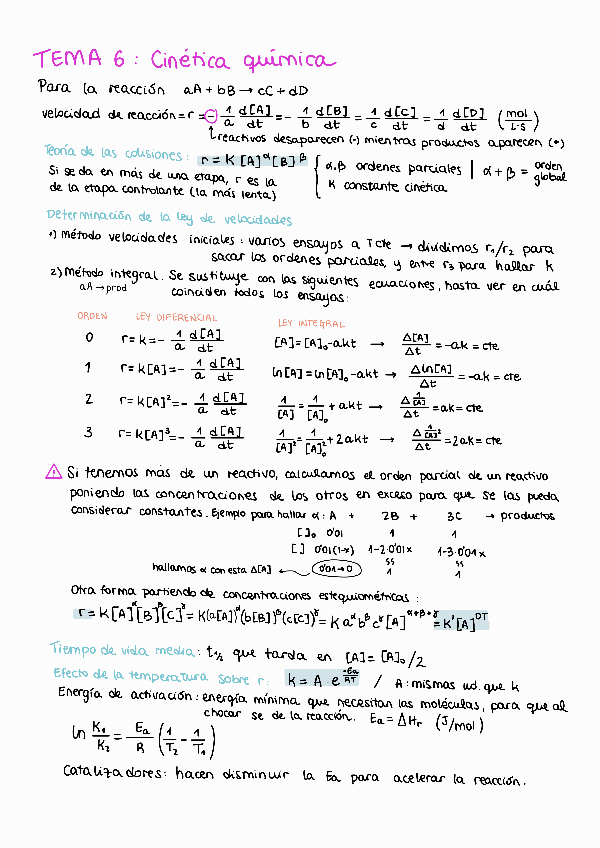 TEMA 6: Cinética química
Para la reacción aA + bB → cC + dD
velocidad de reacción = r = - 1/a d[A]/dt = - 1/b d[B]/dt = 1/c d[C]/dt = 1/d d[D]/dt (mol/L·s)
reactivos desaparecen (-) mientras productos aparecen (+)
Teoría de las colisiones: r = K [A]^α [B]^β { α, β ordenes parciales | α + β = orden global
Si se da en más de una etapa, r es la
de la etapa controlante (la más lenta)
K constante cinética
Determinación de la ley de velocidades
1) Método velocidades iniciales: varios ensayos a T cte → dividimos r₁/r₂ para
sacar los ordenes parciales, y entre r₃ para hallar k
2) Método integral. Se sustituye con las siguientes ecuaciones, hasta ver en cuál
aA → prod
coinciden todos los ensayos:
ORDEN LEY DIFERENCIAL LEY INTEGRAL
0 r = k = - 1/a d[A]/dt [A] = [A]₀ - akt → Δ[A]/Δt = -ak = cte
1 r = k[A] = - 1/a d[A]/dt ln[A] = ln[A]₀ - akt → Δln[A]/Δt = -ak = cte
2 r = k[A]² = - 1/a d[A]/dt 1/[A] = 1/[A]₀ + akt → Δ 1/[A]/Δt = ak = cte
3 r = k[A]³ = - 1/a d[A]/dt 1/[A]² = 1/[A]₀² + 2akt → Δ 1/[A]²/Δt = 2ak = cte
! Si tenemos más de un reactivo, calculamos el orden parcial de un reactivo
poniendo las concentraciones de los otros en exceso para que se las pueda
considerar constantes. Ejemplo para hallar α: A + 2B + 3C → productos
[ ]₀ 0'01 1 1
[ ] 0'01(1-x) 1-2·0'01x 1-3·0'01x
hallamos α con esta Δ[A] ← 0'01→0 ≈ 1 ≈ 1
Otra forma partiendo de concentraciones estequiométricas:
r = K[A]^α[B]^β[C]^γ = K(a[A])^α(b[B])^β(c[C])^γ = K a^α b^β c^γ [A]^(α+β+γ) = K'[A]^OT
Tiempo de vida media: t½ que tarda en [A] = [A]₀/2
Efecto de la temperatura sobre r: k = A · e^(-Ea/RT) / A: mismas ud. que k
Energía de activación: energía mínima que necesitan las moléculas, para que al
chocar se de la reacción. Ea = ΔHr (J/mol)
ln K₁/K₂ = Ea/R (1/T₂ - 1/T₁)
Catalizadores: hacen disminuir la Ea para acelerar la reacción.